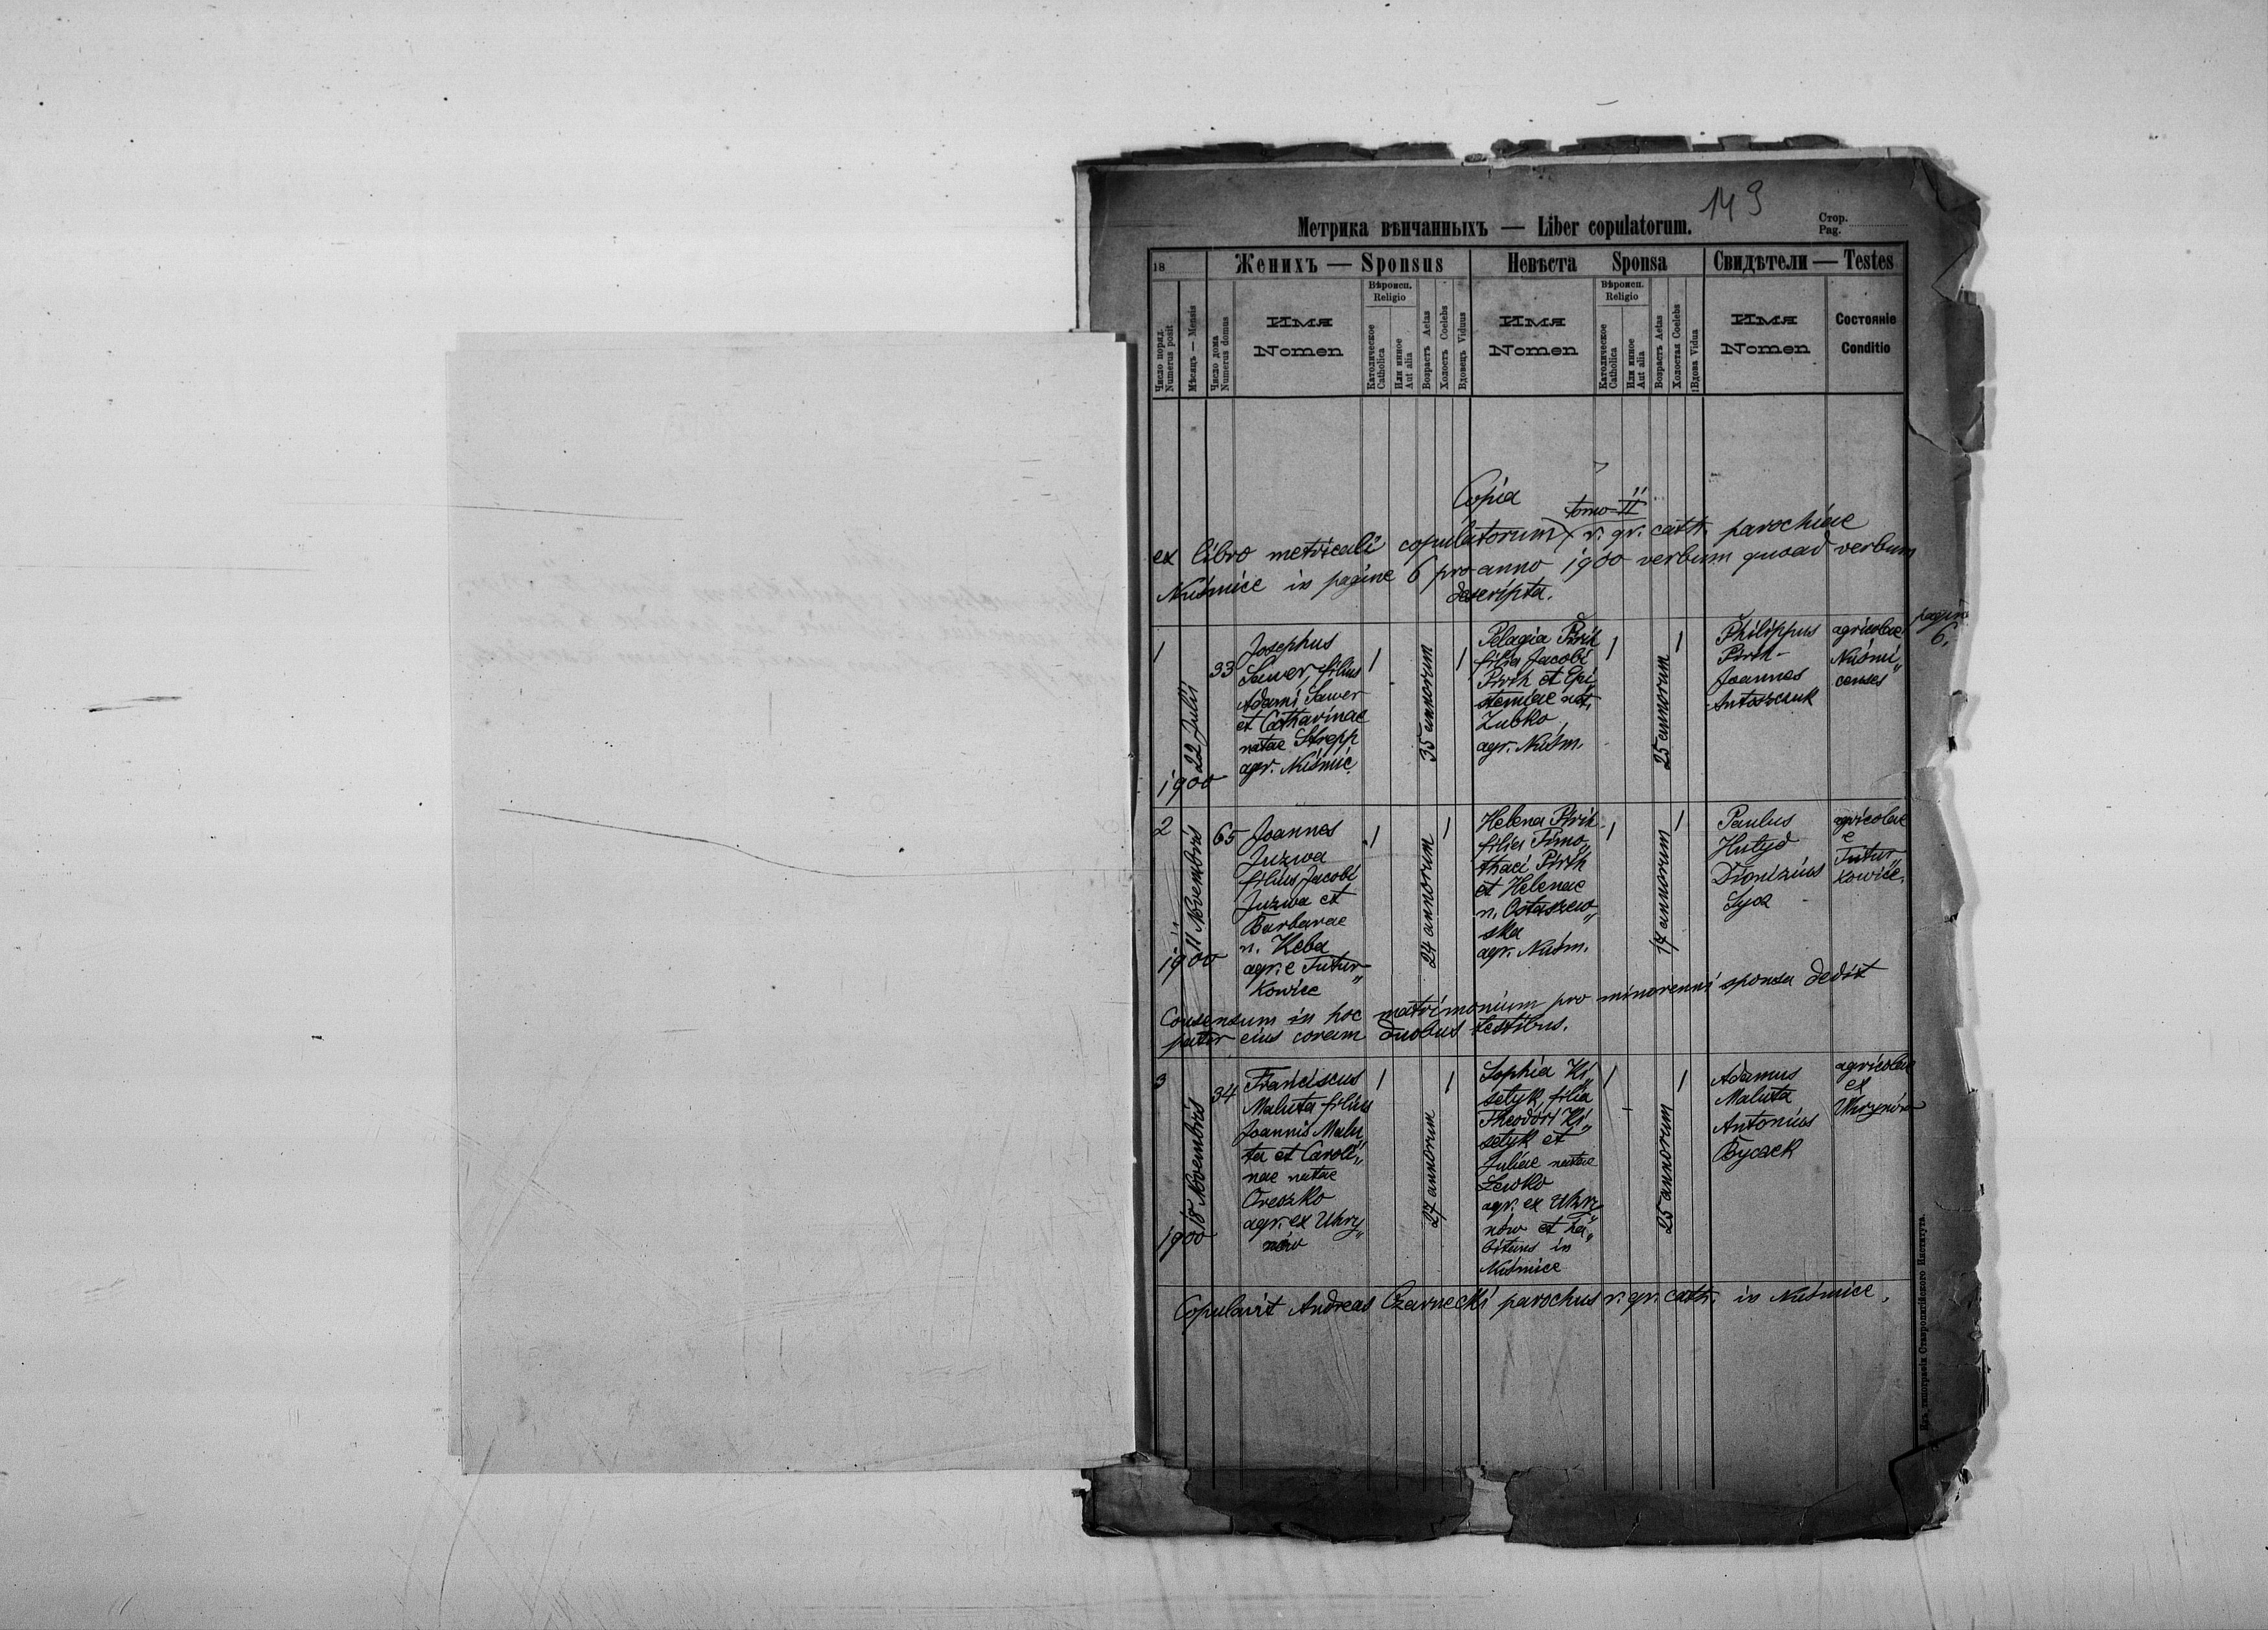 149
Метрика вѣнчанныхъ — Liber copulatorum.
Стор.
Pag.
18
Женихъ — Sponsus
Невѣста Sponsa
Свидѣтели — Testes
Число поряд.
Numerus posit
Мѣсяцъ — Mensis
Число дома
Numerus domus
Имя
Nomen
Вѣроисп.
Religio
Католическое
Catholica
Или инное
Aut alia
Возрастъ Aetas
Холостъ Coelebs
Вдовецъ Viduus
Имя
Nomen
Вѣроисп.
Religio
Католическое
Catholica
Или инное
Aut alia
Возрастъ Aetas
Холостая Coelebs
Вдова Vidua
Имя
Nomen
Состояніе
Conditio
Copia
tomo II
ex libro metricali copulatorum r. gr. cath. parochiae
Nuśmice in pagine 6 pro anno 1900 verbum quoad verbum
descripta.
pagina
6.
1
22 Julii
1900
33
Josephus
Sawer, filius
Adami Sawer
et Catharinae
natae Strepp
agr. Nuśmic.
1
35 annorum
1
Pelagia Pirih
filia Jacobi
Pirih et Epi
stemiae nat.
Zubko
agr. Nuśm.
1
25 annorum
1
Philippus
Pirih
Joannes
Antoszczuk
agricolae
Nuśmi„
censes
2
11 Novembris
1900
65
Joannes
Juzwa
filius Jacobi
Juzwa et
Barbarae
n. Keba
agr. e Tutur„
kowice
1
24 annorum
1
Helena Pirih
filia Timo„
thaei Pirih
et Helenae
n. Ostaszew„
ska
agr. Nuśm.
1
17 annorum
1
Paulus
Hutyd
Dionizius
Syca
agricolae
e
Tutur„
kowice.
Consensum in hoc matrimonium pro minorenni sponsa dedit
pater eius coram duobus testibus.
3
18 Novembris
1900
34
Franciscus
Maluta filius
Joannis Malu
ta et Caroli„
nae natae
Oreszko
agr. ex Uhry„
nów
1
27 annorum
1
Sophia Ki„
setyk, filia
Theodori Ki„
setyk et
Juliae natae
Lewko
agr. ex Uhry
nów et ha„
bitans in
Nuśmice
1
25 annorum
1
Adamus
Maluta
Antonius
Bycack
agricolae
ex
Uhrynów
Copulavit Andreas Czarnecki parochus r. gr. cath. in Nuśmice.
Изъ типографіи Ставропигійского Института.